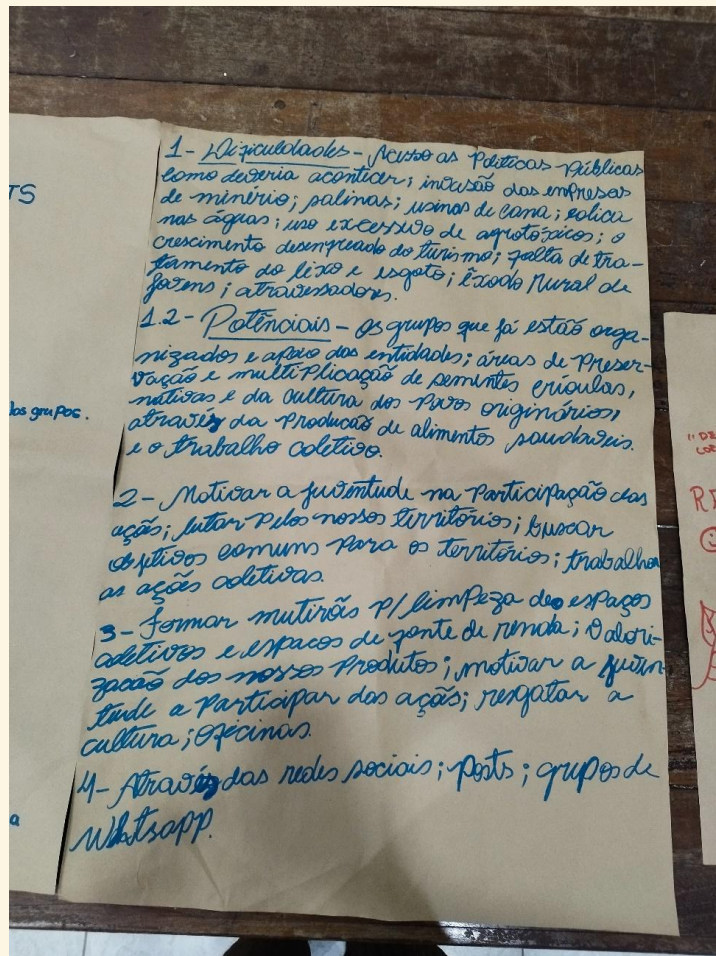 TS
los grupos.
a
1- Dificuldades - Acesso as Políticas Públicas
como deveria acontecer; invasão das empresas
de minério; salinas; usinas de cana; eolica
nas águas; uso excessivo de agrotóxicos; o
crescimento desenfreado do turismo; falta de tra-
tamento do lixo e esgoto; êxodo Rural de
jovens; atravessadores.
1.2- Potênciais - Os grupos que já estão orga-
nizados e apoio das entidades; áreas de Preser-
vação e multiplicação de sementes crioulas,
nativas e da cultura dos Povos originários,
através da Produção de alimentos saudaveis.
e o trabalho coletivo.
2- Motivar a juventude na Participação das
ações; lutar Pelos nossos territórios; buscar
objetivos comuns Para os territórios; trabalhar
as ações coletivas.
3- Formar mutirões p/ limpeza de espaços
coletivos e espaços de fonte de renda; Valori-
zação dos nossos Produtos; motivar a juven-
tude a Participar das ações; resgatar a
cultura; oficinas.
4- Através das redes sociais; posts; grupos de
Whatsapp.
"DE